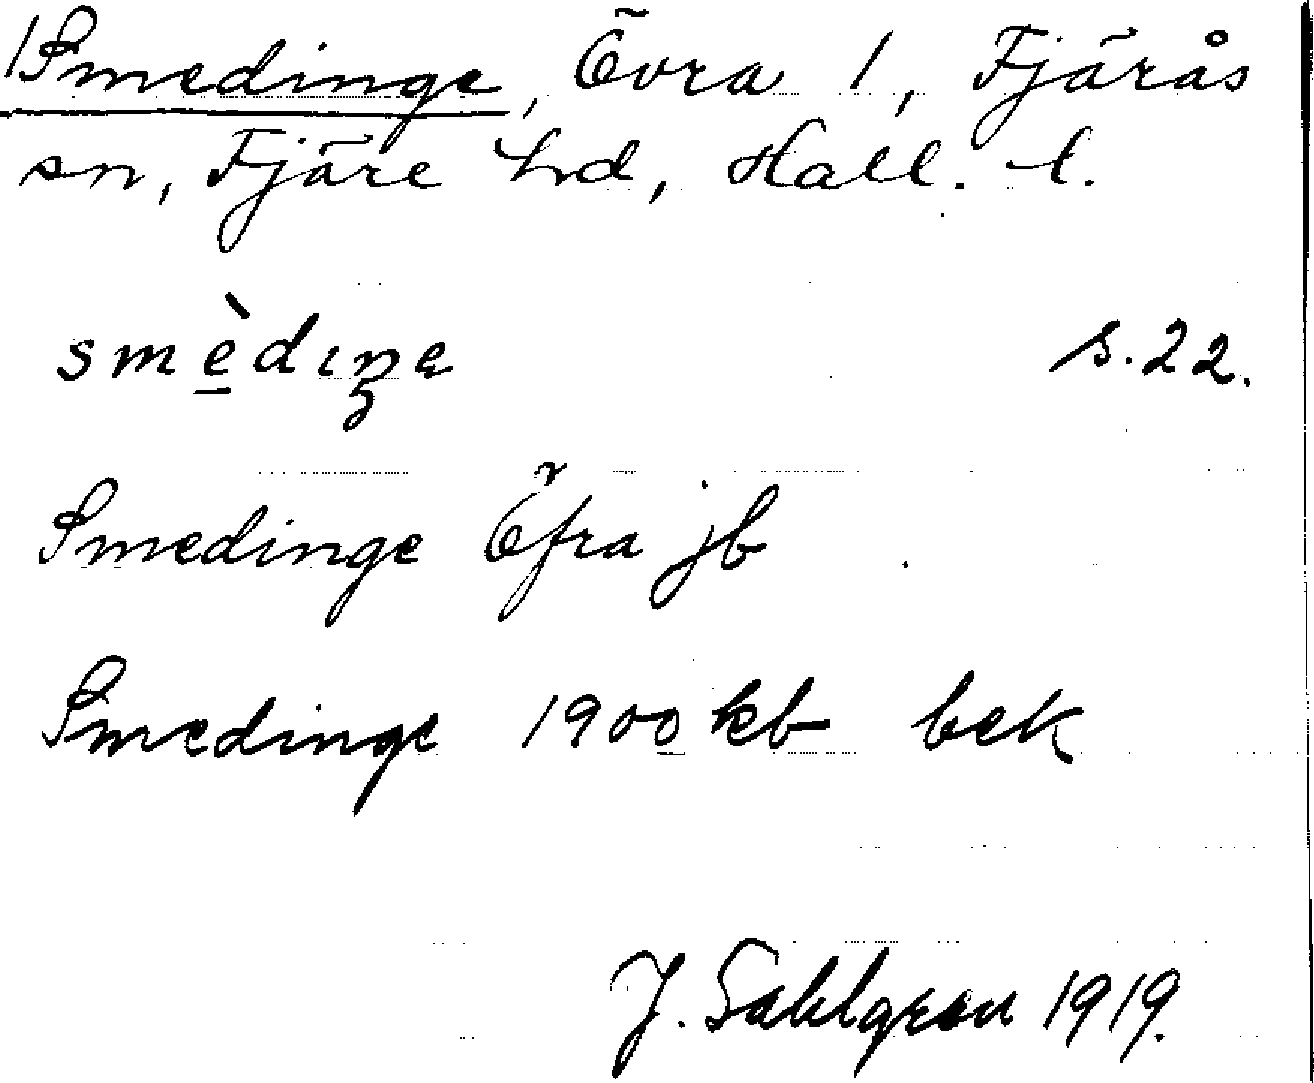 Smedinge, Övra 1, Fjärås
sn, Fjäre hd, Hall. l.
smèdıŋe s.22.
Smedinge Öfra jb
Smedinge 1900 kb bek
J. Sahlgren 1919.